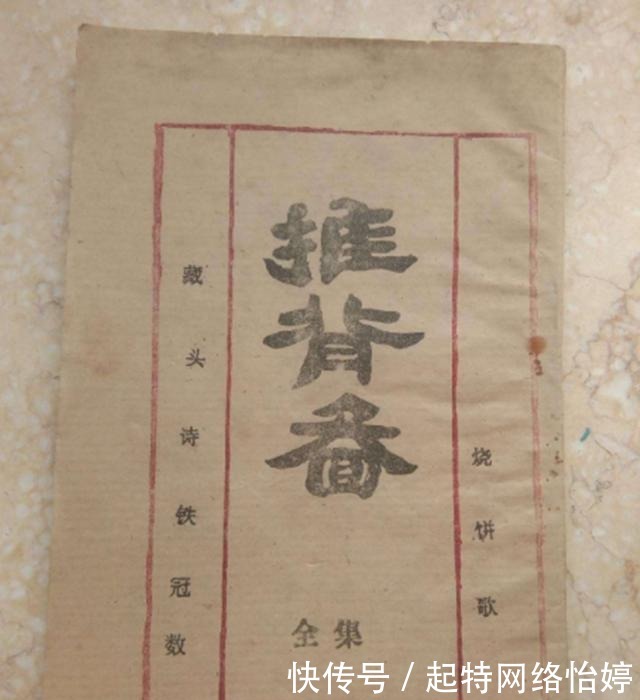 烧饼歌
推背图
全集
藏头诗铁冠数
快传号/起特网络怡婷